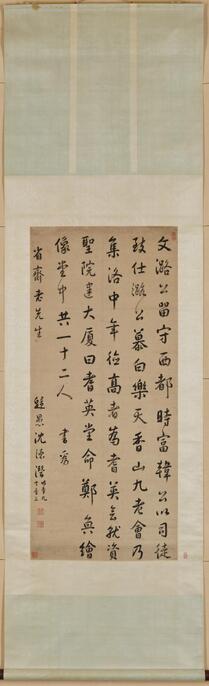 文潞公留守西都時富韓公以司徒
致仕潞公慕白樂天香山九老會乃
集洛中年德高者為耆英會就資
聖院建大厦曰耆英堂命鄭奐繪
像堂中共一十二人 書為
省齋老先生
沈德潛